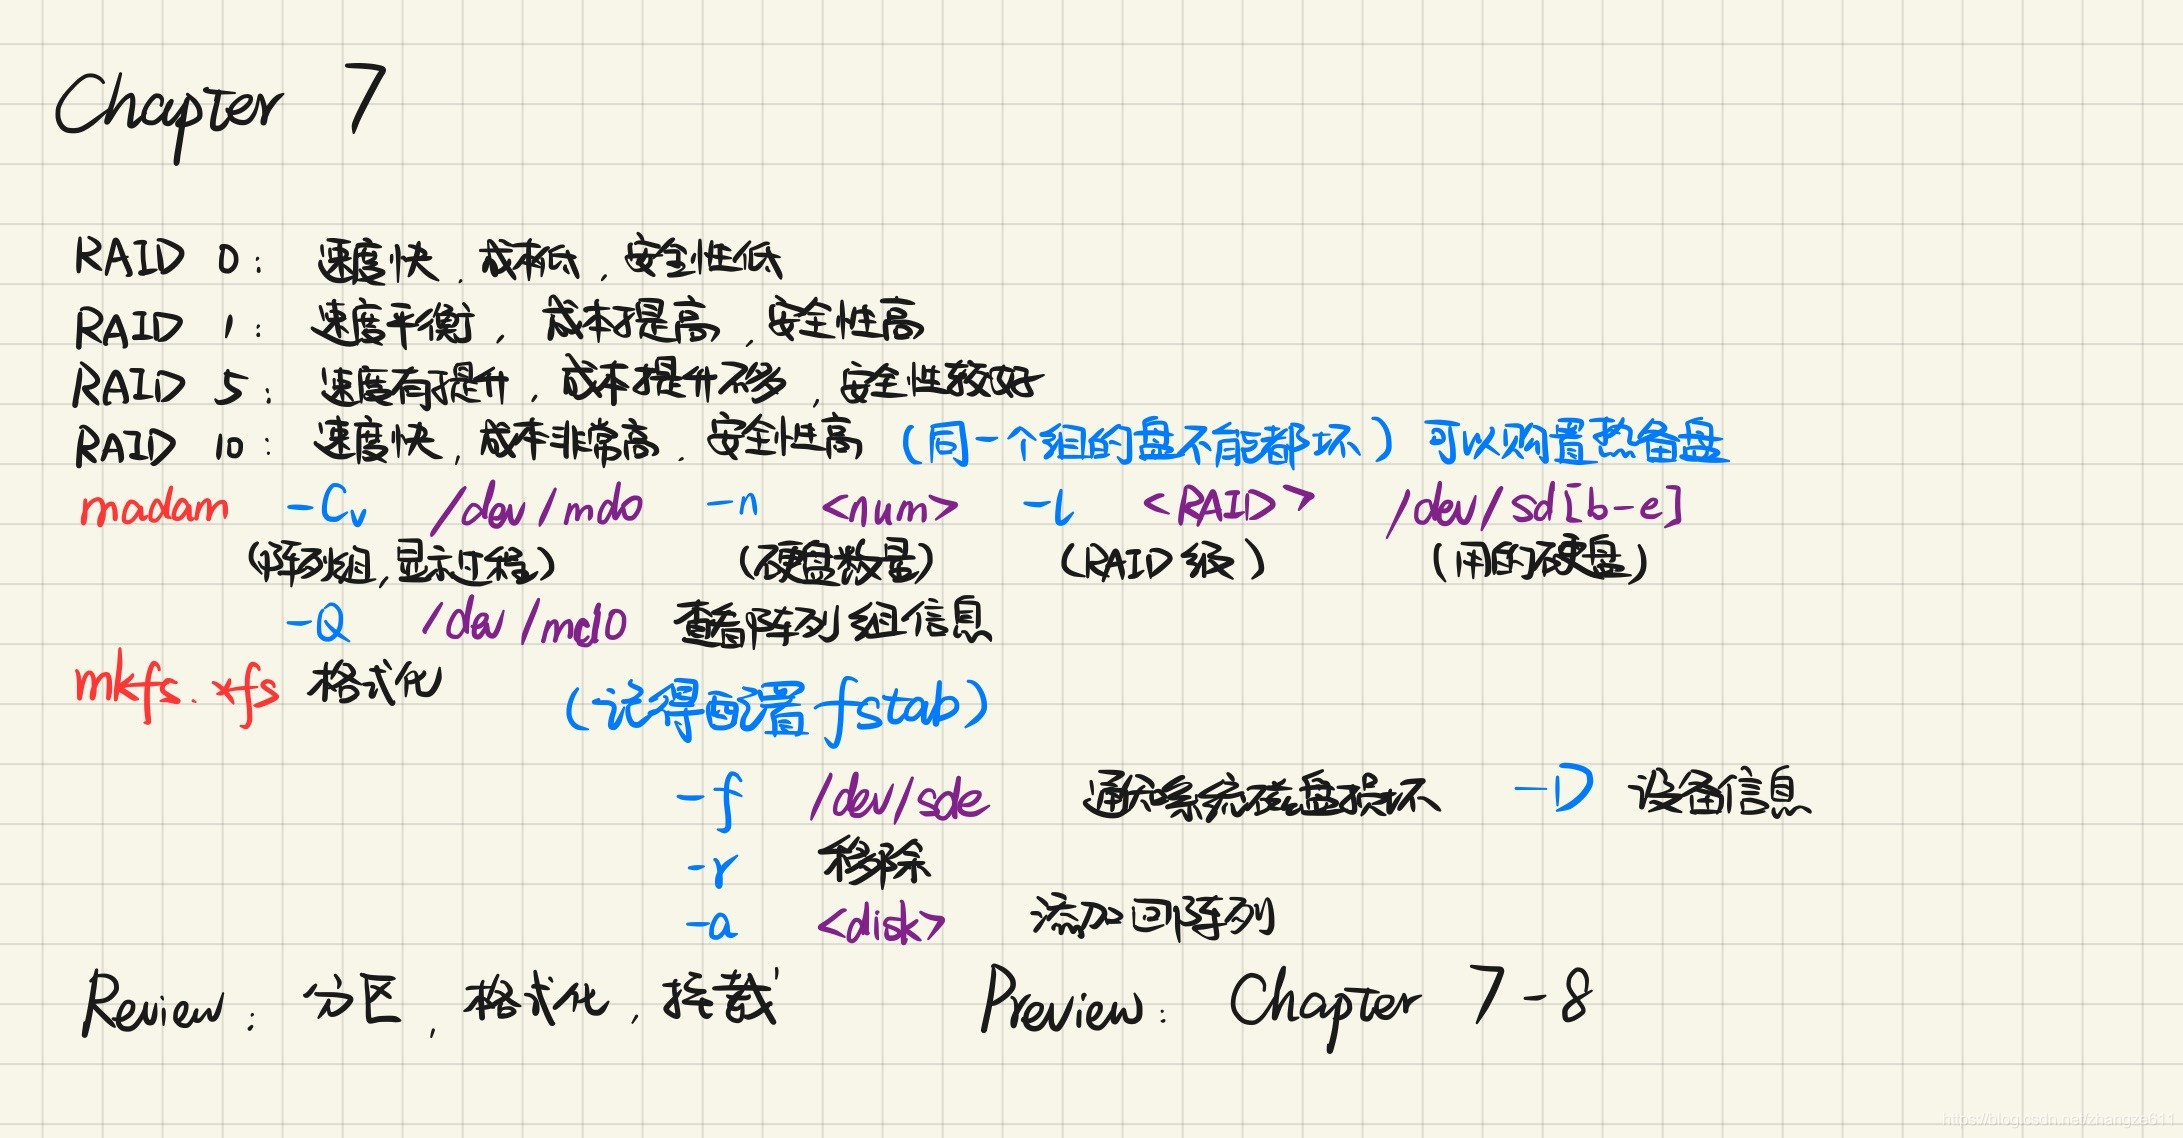 Chapter 7
RAID 0: 速度快, 成本低, 安全性低
RAID 1: 速度平衡, 成本提高, 安全性高
RAID 5: 速度有提升, 成本提升不多, 安全性较好
RAID 10: 速度快, 成本非常高, 安全性高 (同一个组的盘不能都坏) 可以购置热备盘
madam -Cv /dev/md0 -n <num> -l <RAID> /dev/sd[b-e]
(阵列组,显示过程) (硬盘数量) (RAID级) (用的硬盘)
-Q /dev/md0 查看阵列组信息
mkfs.*fs 格式化
(记得配置fstab)
-f /dev/sde 通知系统磁盘损坏 -D 设备信息
-r 移除
-a <disk> 添加回阵列
Review: 分区, 格式化, 挂载 Preview: Chapter 7-8
https://blog.csdn.net/zhangza611